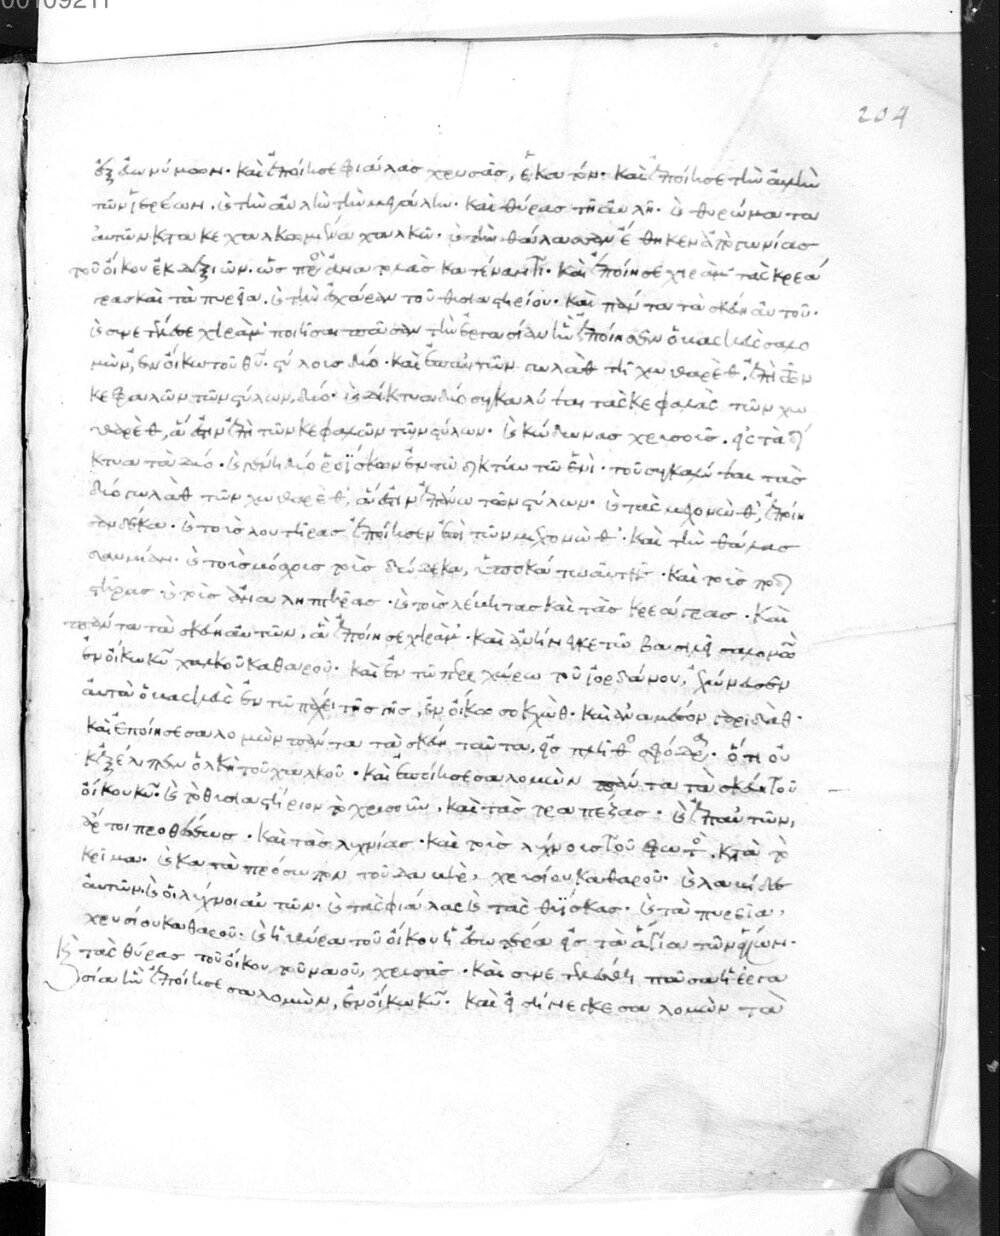 00109211
204
ἐξ εὐωνύμων. καὶ ἐποίησε φιάλας χρυσᾶς, ἑκατόν. καὶ ἐποίησε τὴν αὐλὴν
τῶν ἱερέων. καὶ τὴν αὐλὴν τὴν μεγάλην. καὶ θύρας τῇ αὐλῇ. καὶ θυρώματα
αὐτῶν κατακεχαλκωμένα χαλκῷ. καὶ τὴν θάλασσαν ἔθηκεν ἀπὸ γωνίας
τοῦ οἴκου ἐκ δεξιῶν. ὡς πρὸς ἀνατολὰς κατέναντι. καὶ ἐποίησε χιρὰμ τὰς κρεά
γρας καὶ τὰ πυρεῖα. καὶ τὴν ἐσχάραν τοῦ θυσιαστηρίου. καὶ πάντα τὰ σκεύη αὐτοῦ.
καὶ συνετέλεσε χιρὰμ ποιῆσαι πᾶσαν τὴν ἐργασίαν ἣν ἐποίησεν ὁ βασιλεὺς σαλο
μὼν, ἐν οἴκω τοῦ θυ. στύλοις δύο. καὶ ἐπ' αὐτῶν γωλὰθ τῇ χωθαρὲθ, ἐπὶ τῶν
κεφαλῶν τῶν στύλων, δύο. καὶ δίκτυα δύο συγκαλύψαι τὰς κεφαλὰς τῶν χω
θαρὲθ, ἅ ἐστιν ἐπὶ τῶν κεφαλῶν τῶν στύλων. καὶ κώδωνας χρυσοῖς. εἰς τὰ δί
κτυα τὰ δύο. καὶ γένη δύο ῥοΐσκων ἐν τῷ δικτύω τῷ ἑνὶ. τοῦ συγκαλύψαι τὰς
δύο γωλὰθ τῶν χωθαρὲθ, ἅ ἐστιν ἐπάνω τῶν στύλων. καὶ τὰς μεχονὼθ, ἐποίη
σεν δέκα. καὶ τοὺς λουτῆρας ἐποίησεν ἐπὶ τῶν μεχονὼθ. καὶ τὴν θάλασ
σαν μίαν. καὶ τοὺς μόσχους τοὺς δώδεκα, ὑποκάτω αὐτῆς. καὶ τοὺς ποδι
στῆρας καὶ τοὺς ἀναλημπτῆρας. καὶ τοὺς λέβητας καὶ τὰς κρεάγρας. καὶ
πάντα τὰ σκεύη αὐτῶν, ἃ ἐποίησε χιρὰμ. καὶ ἀνήνεγκε τῷ βασιλεῖ σαλομὼν
ἐν οἴκω κυ χαλκοῦ καθαροῦ. καὶ ἐν τῷ περιχώρω τοῦ ἰορδάνου, ἐχώνευσεν
αὐτὰ ὁ βασιλεὺς ἐν τῷ πάχει τῆς γῆς, ἐν οἴκω σοκχὼθ. καὶ ἀναμέσον σαριδὰθ.
καὶ ἐποίησε σαλομὼν πάντα τὰ σκεύη ταῦτα, εἰς πλῆθος σφόδρα. ὅτι οὐ
κ ἐξέλιπεν ὁλκὴ τοῦ χαλκοῦ. καὶ ἐποίησε σαλομὼν πάντα τὰ σκεύη τοῦ
οἴκου κυ. καὶ τὸ θυσιαστήριον τὸ χρυσοῦν. καὶ τὰς τραπέζας. καὶ ἐπ' αὐτῶν,
ἄρτοι προθέσεως. καὶ τὰς λυχνίας. καὶ τοὺς λύχνους τοῦ φωτὸς, κατὰ τὸ
κρίμα. καὶ κατὰ πρόσωπον τοῦ δαβεὶρ, χρυσίου καθαροῦ. καὶ λαβίδες
αὐτῶν, καὶ οἱ λύχνοι αὐτῶν. καὶ τὰς φιάλας καὶ τὰς θυΐσκας. καὶ τὰ πυρεῖα,
χρυσίου καθαροῦ. καὶ ἡ θύρα τοῦ οἴκου ἡ ἐσωτέρα εἰς τὰ ἅγια τῶν ἁγίων.
καὶ τὰς θύρας τοῦ οἴκου τοῦ ναοῦ, χρυσᾶς. καὶ συνετελέσθη πᾶσα ἡ ἐργα
σία ἣν ἐποίησε σαλομὼν, ἐν οἴκω κυ. καὶ εἰσήνεγκε σαλομὼν τὰ